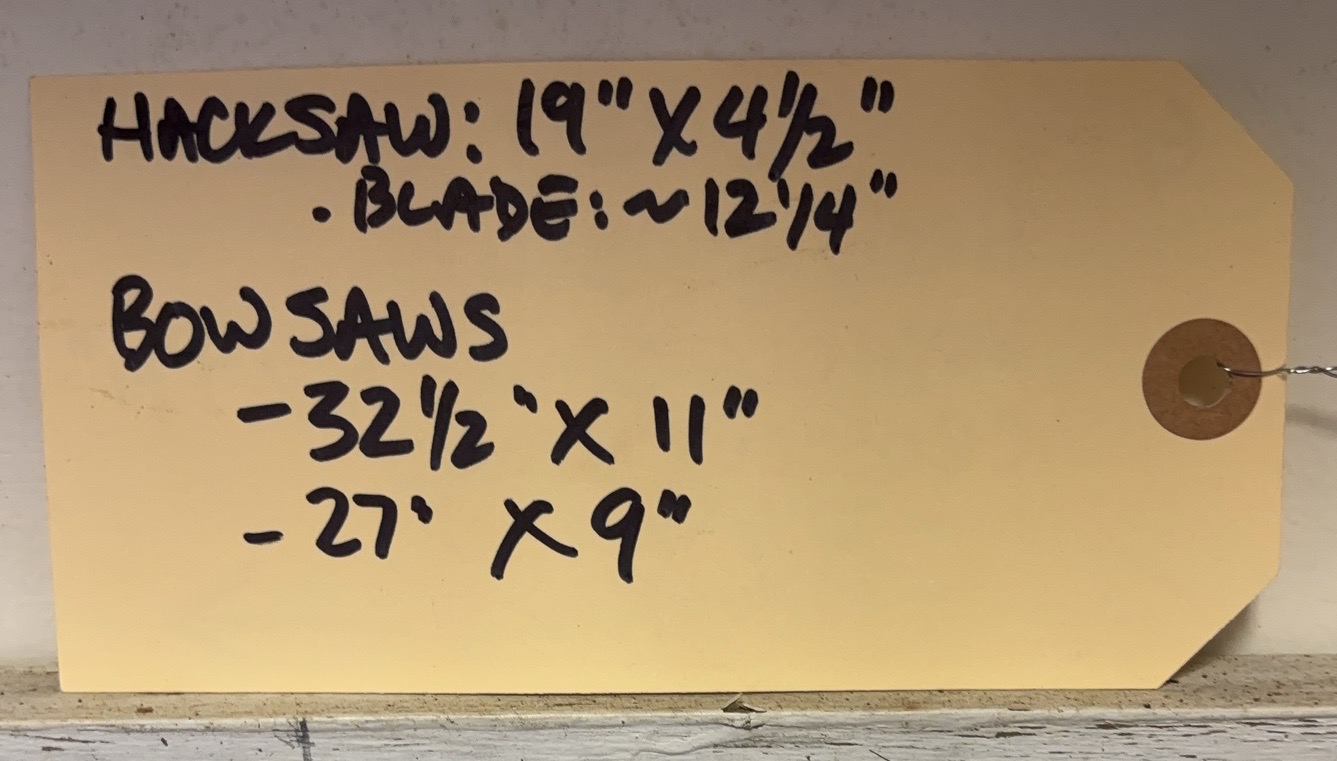 HACKSAW: 19" X 4 1/2"
. BLADE: ~ 12 1/4"
BOW SAWS
- 32 1/2" X 11"
- 27' X 9"